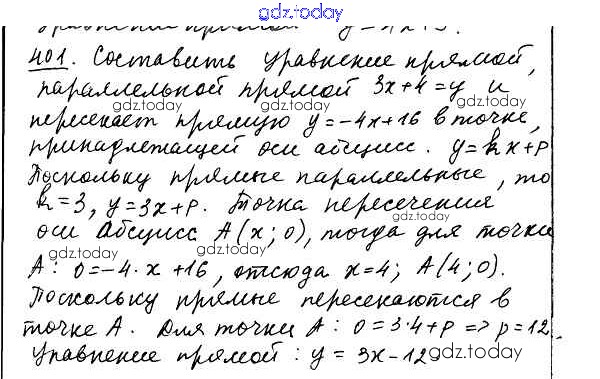 gdz.today
401. Составить уравнение прямой,
параллельной прямой 3x+4=y и
gdz.today gdz.today
пересекает прямую y=-4x+16 в точке,
принадлежащей оси абсцисс. y=kx+p
gdz.today gdz.today
Поскольку прямые параллельные, то
k=3, y=3x+p. Точка пересечения
gdz.today gdz.today
оси абсцисс A(x; 0), тогда для точки
gdz.today
A: 0=-4·x+16, отсюда x=4; A(4; 0).
gdz.today
Поскольку прямые пересекаются в
gdz.today
точке A. Для точки A: 0=3·4+p => p=12.
gdz.today
Уравнение прямой: y=3x-12.
gdz.today gdz.today